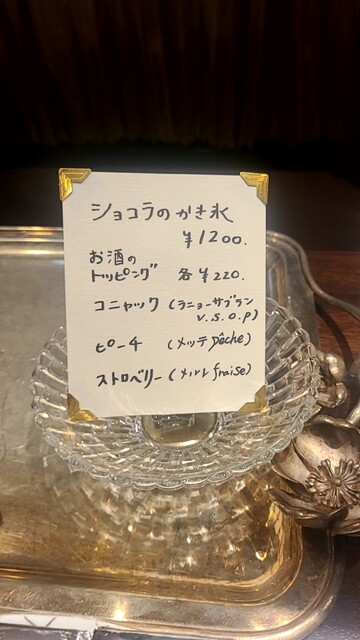 ショコラのかき氷
¥1200.
お酒の
トッピング 各¥220.
コニャック (ラニョーサブラン
V.S.O.P)
ピーチ (メッテ Pêche)
ストロベリー (メルル fraise)